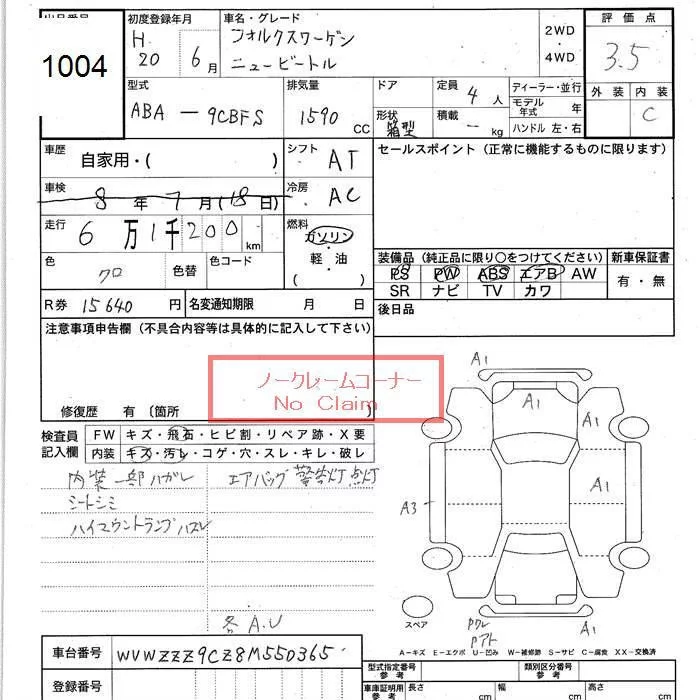 出品番号
1004
初度登録年月
H
20 6月
車名・グレード
フォルクスワーゲン
ニュービートル
2WD
・
4WD
評価点
3.5
外装 内装
C
型式
ABA － 9CBFS
排気量
1590 CC
ドア
形状
箱型
定員
4人
積載
－ kg
ディーラー・並行
モデル年式 年
ハンドル 左・右
車歴
自家用・( )
シフト
AT
セールスポイント（正常に機能するものに限ります）
車検
8年7月(18日)
冷房
AC
走行
6万1千200km
燃料
ガソリン
・
軽・油
( )
色
クロ
色替
色コード
装備品（純正品に限り○をつけてください）
PS PW ABS エアB AW
SR ナビ TV カワ
新車保証書
有・無
R券 15640円
名変通知期限 月 日
後日品
注意事項申告欄（不具合内容等は具体的に記入して下さい）
ノークレームコーナー
No Claim
修復歴 有（箇所 ）
検査員記入欄
FW キズ・飛石・ヒビ割・リペア跡・X要
内装 キズ・汚レ・コゲ・穴・スレ・キレ・破レ
内装一部ハガレ エアバッグ警告灯点灯
シートシミ
ハイマウントランプハズレ
各A.U
A1
A1
A1
A1
A3
スペア
A1
A－キズ E－エクボ U－凹み W－補修跡 S－サビ C－腐食 XX－交換済
車台番号 WVWZZZ9CZ8M550365
登録番号
型式指定番号
類別区分番号
車庫証明用
長さ cm
幅 cm
高さ cm